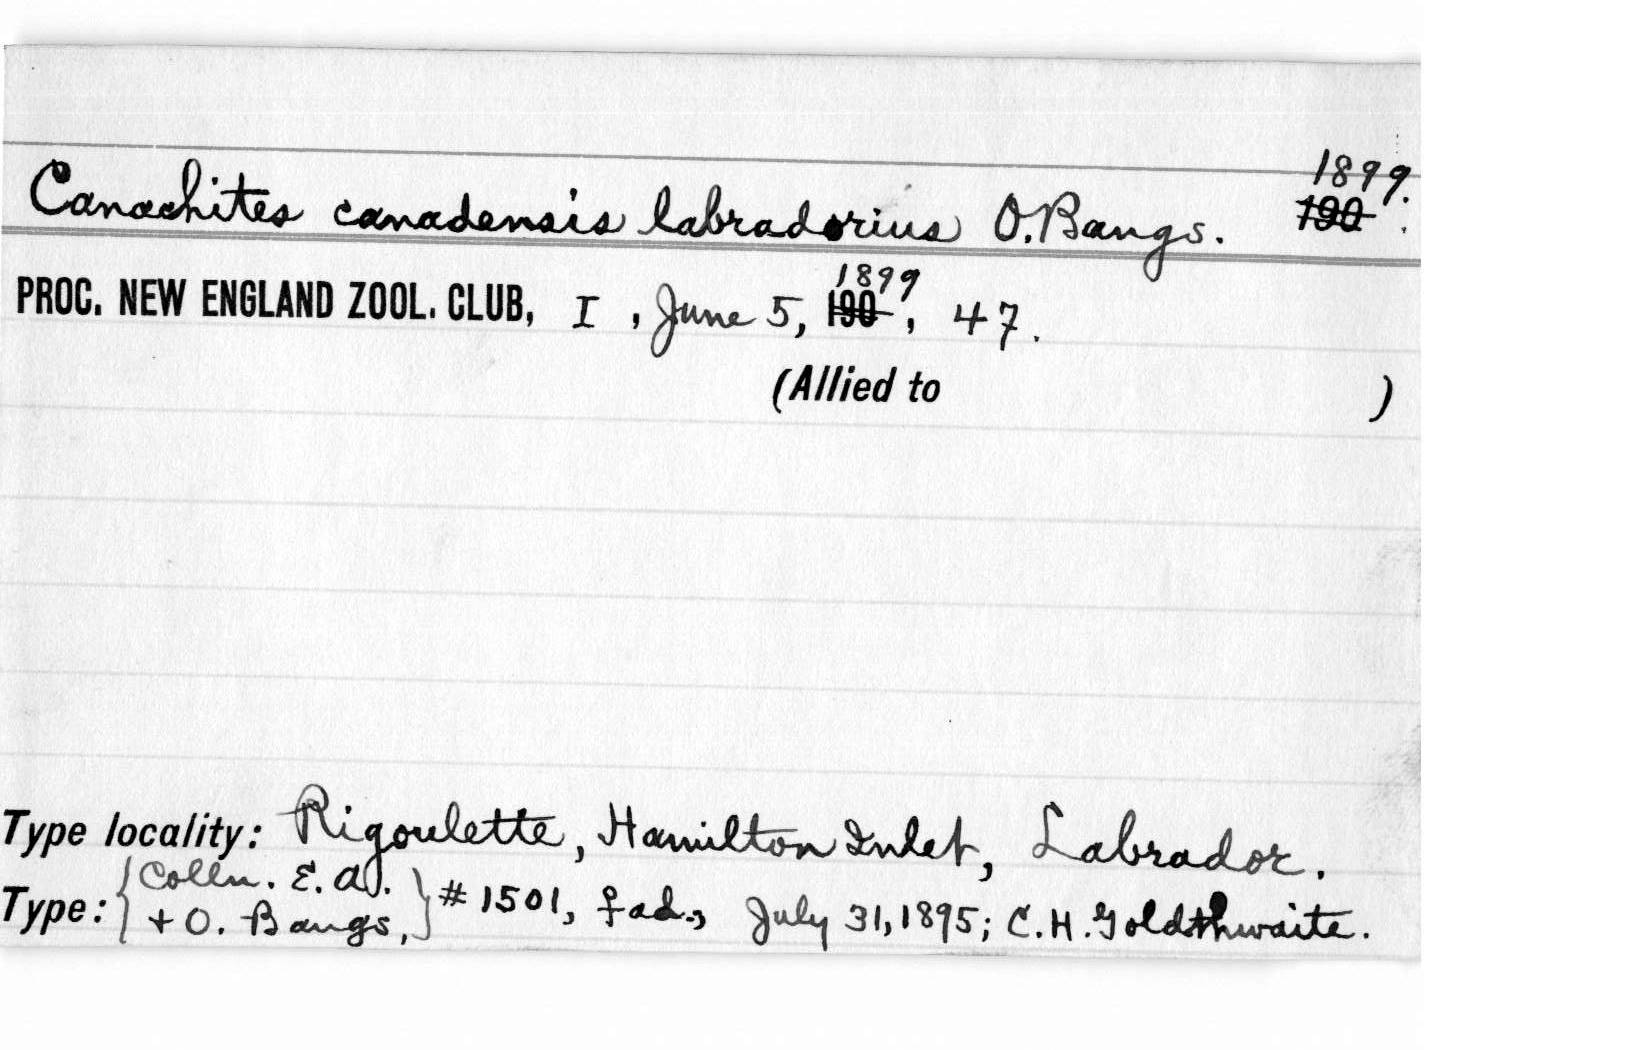 Canachites canadensis labradorius O. Bangs. 1899.
190 .
PROC. NEW ENGLAND ZOOL. CLUB, I , June 5, 190 1899, 47.
(Allied to )
Type locality: Rigoulette, Hamilton Inlet, Labrador.
Type: { Colln. E. A. + O. Bangs, } # 1501, f ad., July 31, 1895; C. H. Goldthwaite.